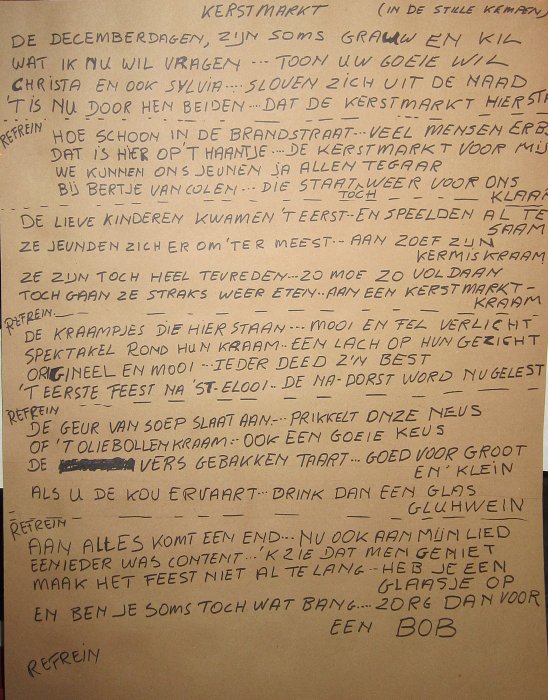 KERSTMARKT (IN DE STILLE KEMPEN)
DE DECEMBERDAGEN, ZIJN SOMS GRAUW EN KIL
WAT IK NU WIL VRAGEN --- TOON UW GOEIE WIL
CHRISTA EN OOK SYLVIA.... SLOVEN ZICH UIT DE NAAD
'T IS NU DOOR HEN BEIDEN --- DAT DE KERSTMARKT HIER
REFREIN HOE SCHOON IN DE BRANDSTRAAT --- VEEL MENSEN
DAT IS HIER OP 'T HAANTJE --- DE KERSTMARKT VOOR
WE KUNNEN ONS JEUNEN JA ALLEN TEGAAR
BIJ BERTJE VAN COLEN --- DIE STAAT WEER VOOR ONS
TOCH KLAAR
DE LIEVE KINDEREN KWAMEN 'T EERST - EN SPEELDEN AL TE
SAAM
ZE JEUNDEN ZICH ER OM 'TER MEEST -- AAN ZOEF ZIJN
KERMISKRAAM
ZE ZIJN TOCH HEEL TEVREDEN --- ZO MOE ZO VOLDAAN
TOCH GAAN ZE STRAKS WEER ETEN -- AAN EEN KERSTMARKT-
KRAAM
REFREIN
DE KRAAMPJES DIE HIER STAAN --- MOOI EN FEL VERLICHT
SPEKTAKEL ROND HUN KRAAM -- EEN LACH OP HUN GEZICHT
ORIGINEEL EN MOOI --- IEDER DEED Z'N BEST
'T EERSTE FEEST NA 'ST-ELOOI -- DE NA-DORST WORD NU GELEST
REFREIN
DE GEUR VAN SOEP SLAAT AAN --- PRIKKELT ONZE NEUS
OF 'T OLIEBOLLENKRAAM -- OOK EEN GOEIE KEUS
DE VERS GEBAKKEN TAART --- GOED VOOR GROOT
EN KLEIN
ALS U DE KOU ERVAART --- DRINK DAN EEN GLAS
GLUHWEIN
REFREIN
AAN ALLES KOMT EEN END --- NU OOK AAN MIJN LIED
EENIEDER WAS CONTENT --- 'K ZIE DAT MEN GENIET
MAAK HET FEEST NIET AL TE LANG -- HEB JE EEN
GLAASJE OP
EN BEN JE SOMS TOCH WAT BANG --- ZORG DAN VOOR
EEN BOB
REFREIN